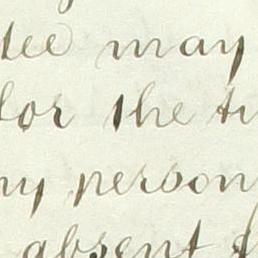 tee may
for the ti
ny person
absent f